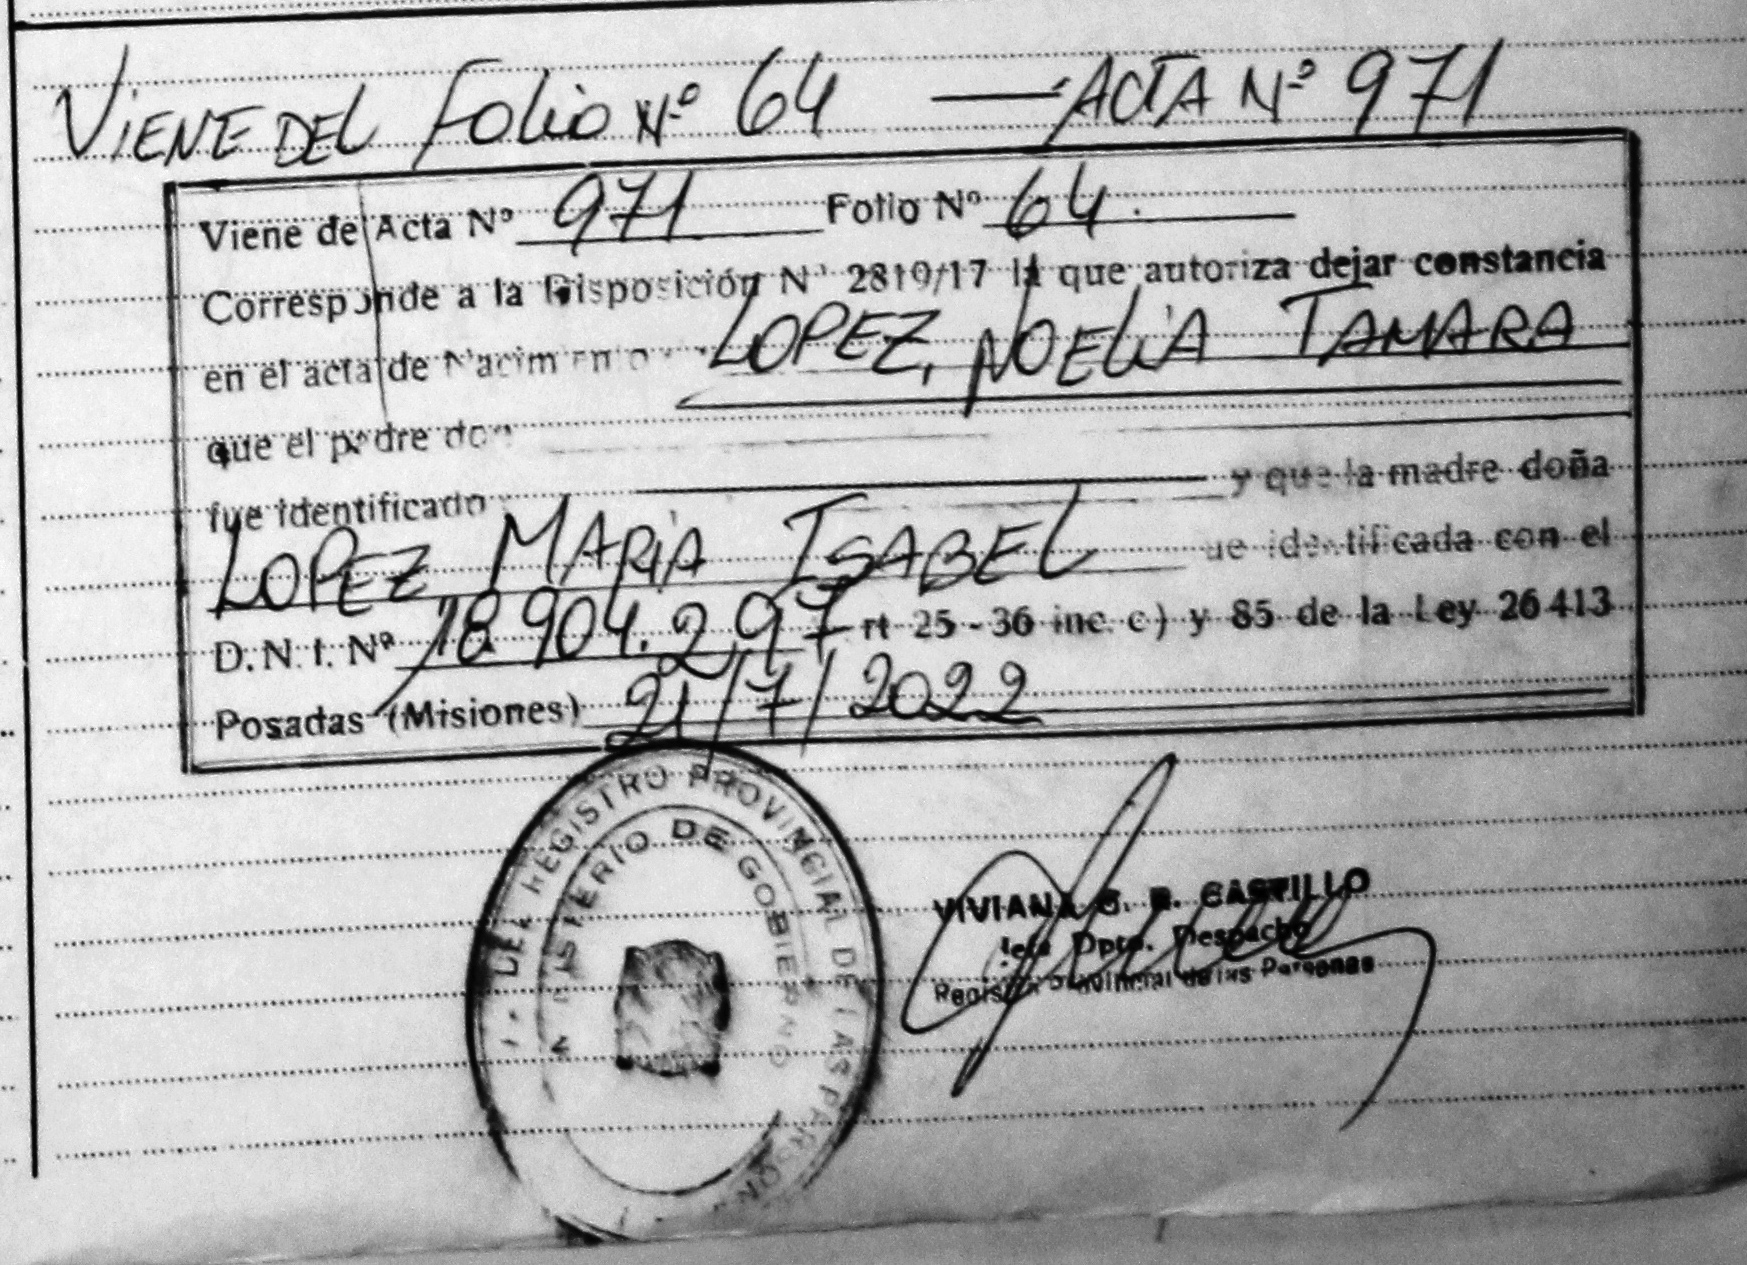 VIENE DEL FOLIO Nº 64 — ACTA Nº 971
Viene de Acta Nº 971 Folio Nº 64.
Corresponde a la Disposición Nº 2819/17 la que autoriza dejar constancia
en el acta de Nacimiento LOPEZ, NOELIA TAMARA
que el padre don
fue identificado y que la madre doña
LOPEZ MARIA ISABEL ue identificada con el
D.N.I. Nº 18.904.297 rt 25 - 36 inc. c) y 85 de la Ley 26413
Posadas (Misiones) 21/7/2022
REGISTRO PROVINCIAL DE LAS PERSON
MINISTERIO DE GOBIERNO
VIVIANA G. B. CASTILLO
Jefa Dpto. Despacho
Registro Provincial de las Personas